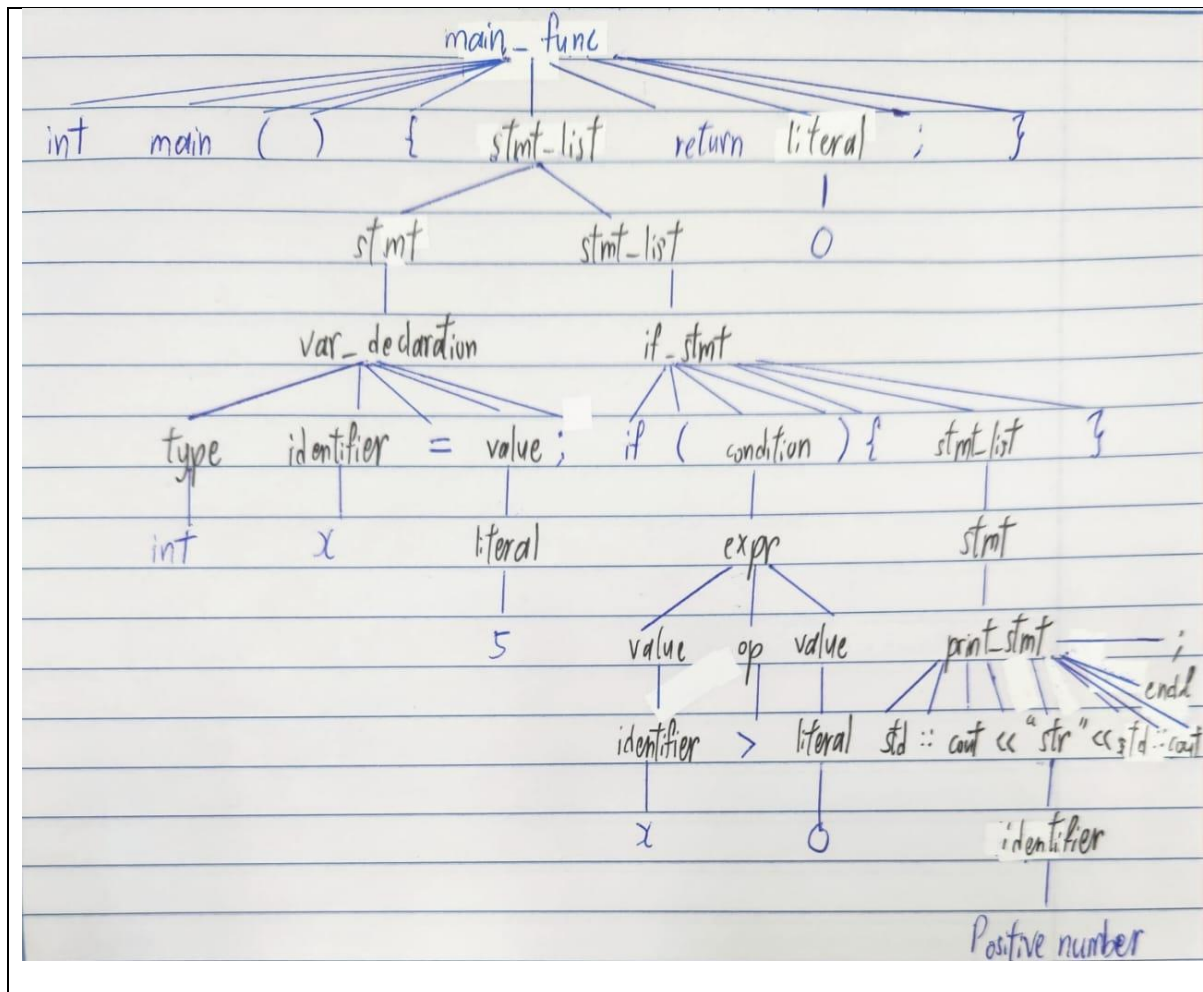 main_func
int main ( ) { stmt_list return literal ; }
stmt stmt_list 0
var_declaration if_stmt
type identifier = value ; if ( condition ) { stmt_list }
int x literal expr stmt
5 value op value print_stmt ;
endl
identifier > literal std :: cout << "str" << std :: cout
x 0 identifier
Positive number